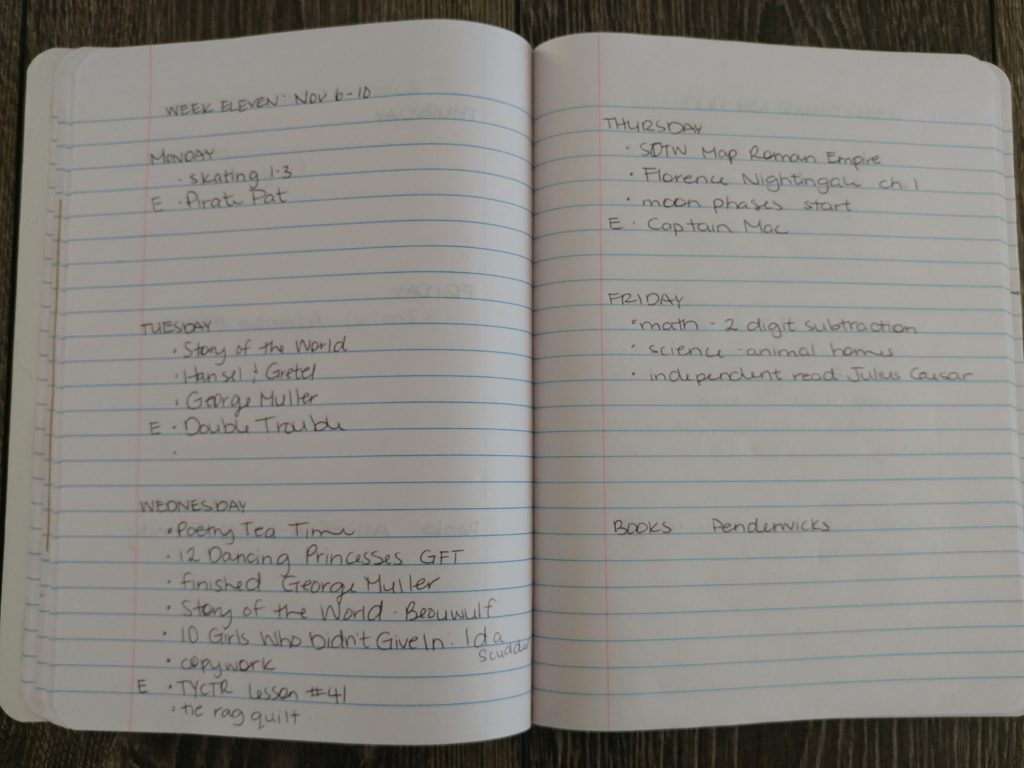 WEEK ELEVEN: NOV 6-10
MONDAY
· skating 1-3
E · Pirate Pat
TUESDAY
· Story of the World
· Hansel & Gretel
· George Muller
E · Double Trouble
·
WEDNESDAY
· Poetry Tea Time
· 12 Dancing Princesses GFT
· finished George Muller
· Story of the World · Beouwulf
· 10 Girls Who Didn't Give In: Ida Scudder
· copywork
E · TYCTR lesson #41
· tie rag quilt
THURSDAY
· SOTW Map Roman Empire
· Florence Nightingale ch. 1
· moon phases start
E · Captain Mac
FRIDAY
· math - 2 digit subtraction
· science - animal homes
· independent read Julius Caesar
BOOKS: Penderwicks